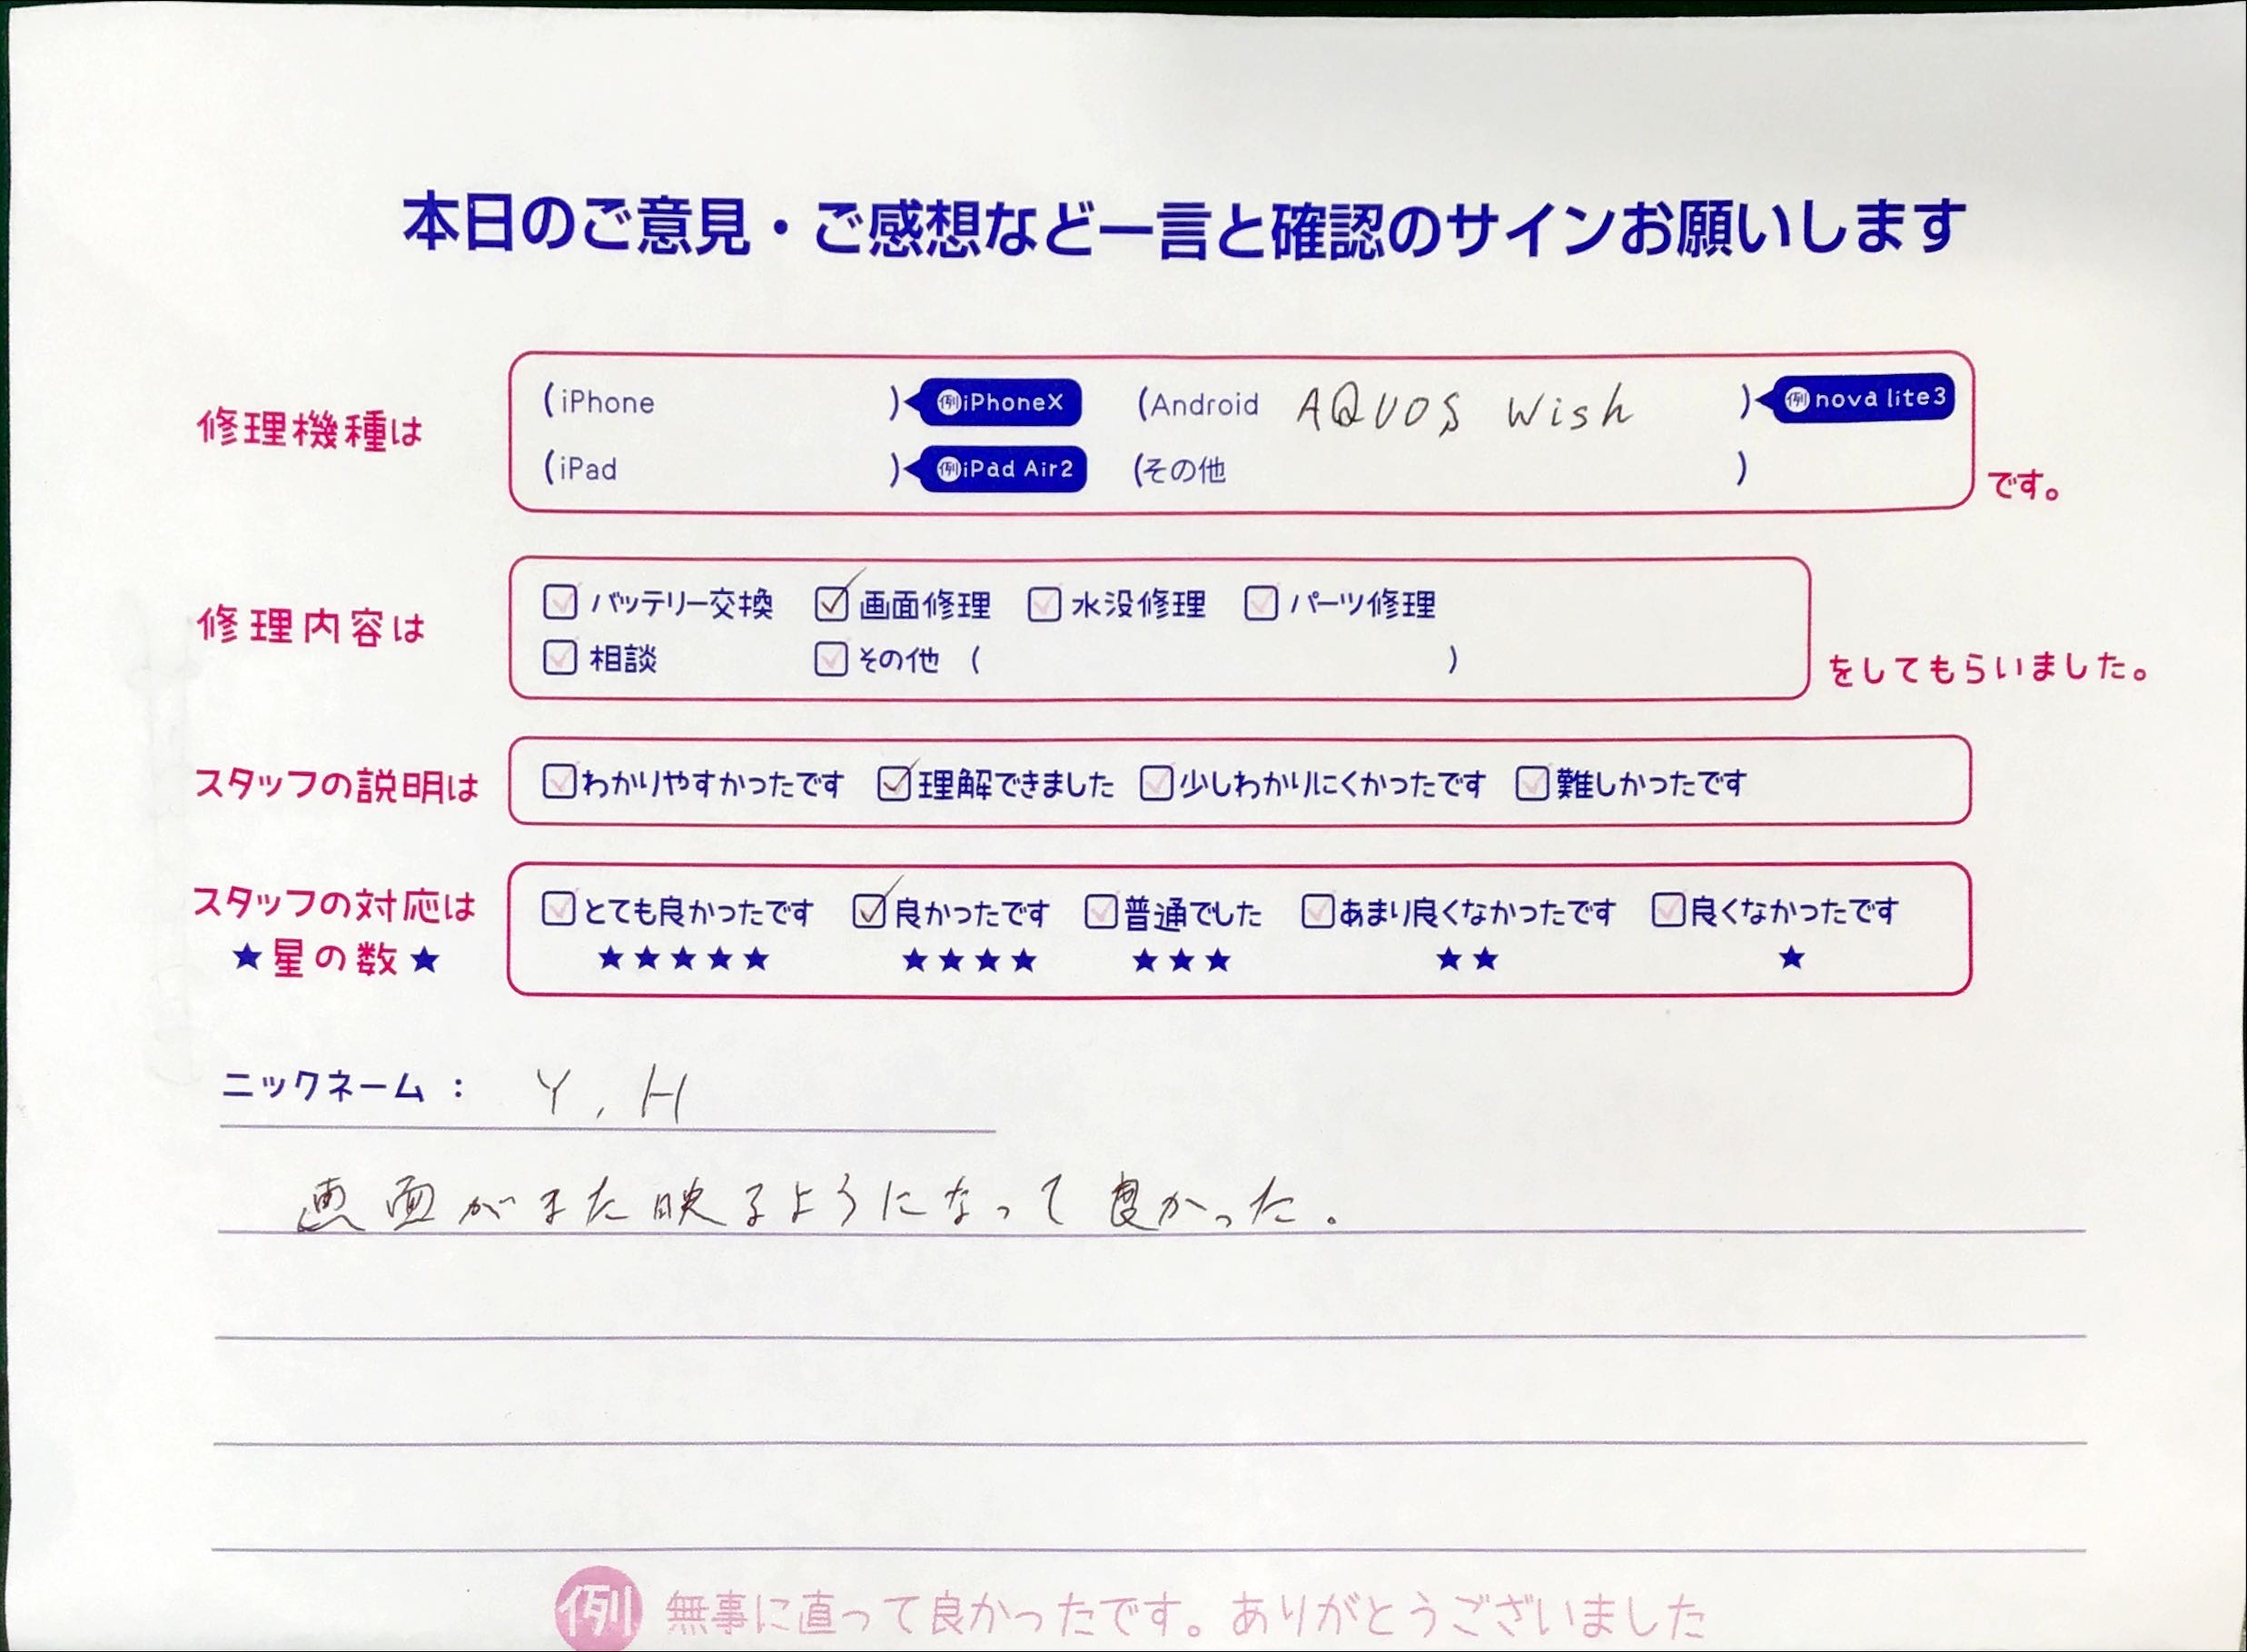 本日のご意見・ご感想など一言と確認のサインお願いします
修理機種は
(iPhone ) 例iPhoneX (Android AQUOS wish ) 例nova lite3
(iPad ) 例iPad Air2 (その他 )
です。
修理内容は
バッテリー交換 画面修理 水没修理 パーツ修理
相談 その他 ( )
をしてもらいました。
スタッフの説明は
わかりやすかったです 理解できました 少しわかりにくかったです 難しかったです
スタッフの対応は
★星の数★
とても良かったです 良かったです 普通でした あまり良くなかったです 良くなかったです
★★★★★ ★★★★ ★★★ ★★ ★
ニックネーム : Y,H
画面がまた映るようになって良かった。
例 無事に直って良かったです。ありがとうございました